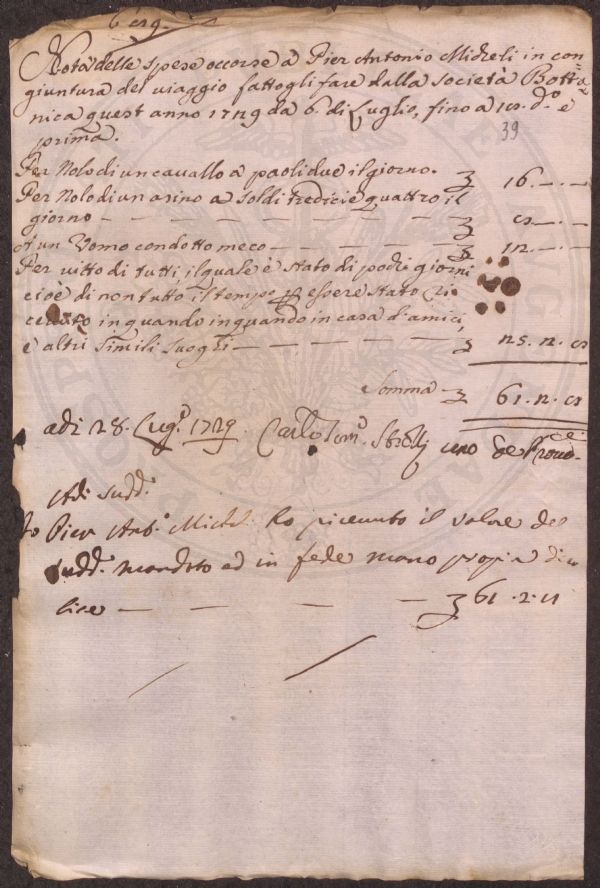 Nota delle spese occorse a Pier Antonio Micheli in con=
giuntura del viaggio fattogli fare dalla Società Botta=
nica quest anno 1729 da 6. di Luglio, fino a d.º e
prima.
39
Per Nolo di un cavallo a paoli due il giorno. 16. — . —
Per Nolo di un asino a Soldi tredici e quattro il
giorno — — — — — — — — —
A un Uomo condotto meco — — — — —
Per vitto di tutti il quale è stato di podi giorni
cioè di non tutto il tempo p essere stato ri
ceuto in quando in quando in casa d'amici,
e altri Simili Luoghi — — — — — —
Somma 61. 2.
adi 28. Lug.º 1729. Carlo Tom.º uno de Proved.
Adi Sudd.º
Io Pier Ant.º Michel. ho riceuuto il valore del
Sudd. mandato ed in fede mano propia dico
lire — — — — 61. 2.